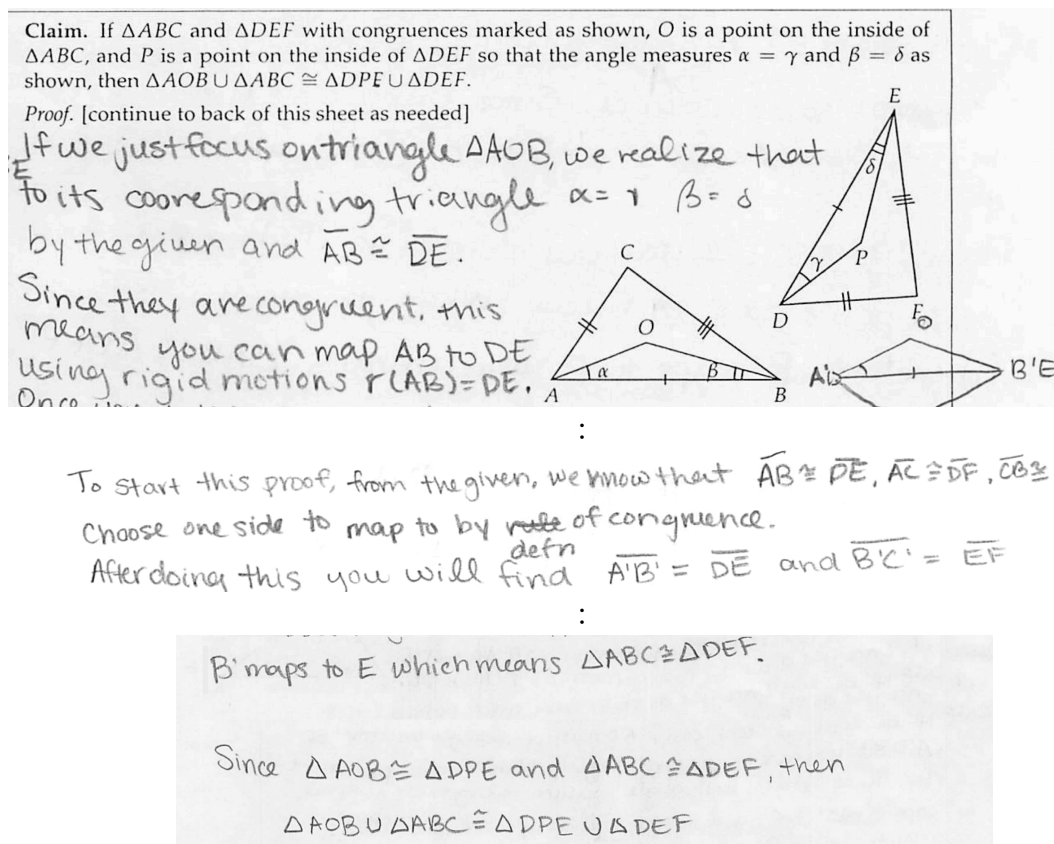 Claim. If △ABC and △DEF with congruences marked as shown, O is a point on the inside of
△ABC, and P is a point on the inside of △DEF so that the angle measures α = γ and β = δ as
shown, then △AOB ∪ △ABC ≅ △DPE ∪ △DEF.
Proof. [continue to back of this sheet as needed]
If we just focus on triangle △AOB, we realize that
E
to its cooresponding triangle α = γ β = δ
by the given and AB ≅ DE.
Since they are congruent, this
means you can map AB to DE
using rigid motions r(AB)=DE.
E
δ
γ
P
D
F
C
O
α
β
A
B
B'E
:
To start this proof, from the given, we know that AB ≅ DE, AC ≅ DF, CB ≅
Choose one side to map to by rule of congruence.
defn
After doing this you will find A'B' = DE and B'C' = EF
:
B' maps to E which means △ABC ≅ △DEF.
Since △AOB ≅ △DPE and △ABC ≅ △DEF, then
△AOB ∪ △ABC ≅ △DPE ∪ △DEF